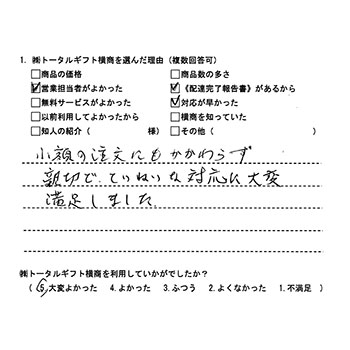 1. ㈱トータルギフト横商を選んだ理由（複数回答可）
□商品の価格 □商品数の多さ
☑営業担当者がよかった ☑《配達完了報告書》があるから
□無料サービスがよかった ☑対応が早かった
□以前利用してよかったから □横商を知っていた
□知人の紹介（ 様） □その他（ ）
小額の注文にもかかわらず
親切で、ていねいな対応に大変
満足しました。
㈱トータルギフト横商を利用していかがでしたか？
（ 5.大変よかった 4.よかった 3.ふつう 2.よくなかった 1.不満足 ）